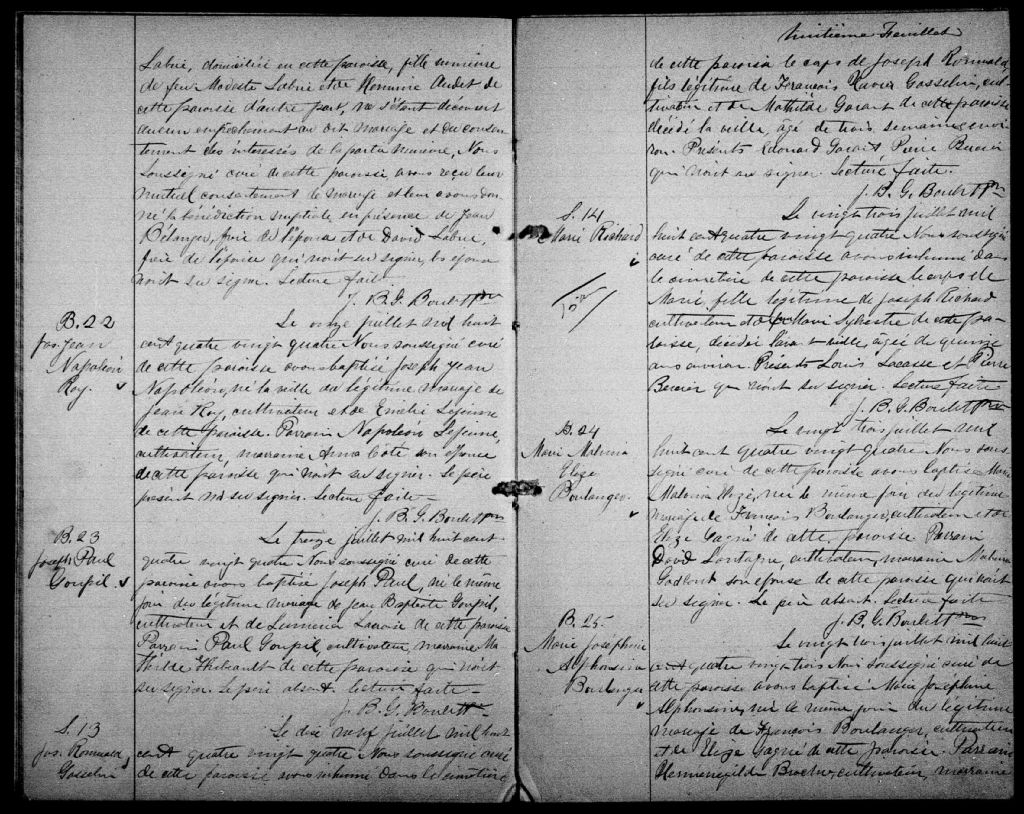 Labrie, domiciliée en cette paroisse, fille mineure
de feu Modeste Labrie et de Hermine Audet de
cette paroisse d'autre part, ne s'étant découvert
aucun empêchement au dit mariage et du consen-
tement des intéressés de la partie mineure, Nous
soussigné curé de cette paroisse avons reçu leur
mutuel consentement de mariage et leur avons don
né la bénédiction nuptiale en présence de Jean
Bélanger, père de l'époux et de David Labrie,
de l'épouse qui n'ont su signer, les époux
n'ont su signer. Lecture faite.
J. B. G. Boulet Ptre
B. 22
Jos. Jean
Napoléon
Roy.
Le onze juillet mil huit
cent quatre vingt quatre Nous soussigné curé
de cette paroisse avons baptisé Joseph Jean
Napoléon, né la veille du légitime mariage de
Jean Roy, cultivateur et de Emélie Lejeune
de cette paroisse. Parrain Napoléon Lejeune,
cultivateur, marraine Anna Côté son épouse
de cette paroisse qui n'ont su signer. Le père
présent n'a su signer. Lecture faite –
J. B. G. Boulet Ptre
B. 23
Joseph Paul
Goupil.
Le treize juillet mil huit cent
quatre vingt quatre Nous soussigné curé de cette
paroisse avons baptisé Joseph Paul, né le même
jour du légitime mariage de Jean Baptiste Goupil,
cultivateur et de Lumina de cette paroisse
Parrain Paul Goupil, cultivateur, marraine Ma
thilde Thibault de cette paroisse qui n'ont
su signer. Le père absent. Lecture faite –
J. B. G. Boulet Ptre
S. 13
Jos. Romuald
Gosselin
Le dix neuf juillet mil huit
cent quatre vingt quatre Nous soussigné curé
de cette paroisse avons inhumé dans le cimetière
huitième Feuillet
de cette paroisse le corps de Joseph Romuald
fils légitime de François Xavier Gosselin, cul
tivateur et de Mathilde Garant de cette paroisse
décédé la veille, âgé de trois semaines envi
ron. Présents Edouard Garant Pierre
qui n'ont su signer. Lecture faite.
J. B. G. Boulet Ptre
S. 14
Marie Richard
Le vingt trois juillet mil
huit cent quatre vingt quatre Nous soussigné
curé de cette paroisse avons inhumé dans
le cimetière de cette paroisse le corps de
Marie, fille légitime de Joseph Richard
cultivateur et de Marie Sylvestre de cette pa-
roisse, décédée l'avant veille, âgée de quinze
ans environ. Présents Louis Lacasse et Pierre
qui n'ont su signer. Lecture faite
J. B. G. Boulet Ptre
B. 24
Marie Malvina
Elize
Boulanger.
Le vingt trois juillet mil
huit cent quatre vingt quatre Nous sous
signé curé de cette paroisse avons baptisé Marie
Malvina Elize, née le même jour du légitime
mariage de François Boulanger, cultivateur et de
Elize Gagné de cette paroisse Parrain
David cultivateur, marraine Malvina
son épouse de cette paroisse qui n'ont
su signer. Le père absent. Lecture faite
J. B. G. Boulet Ptre
B. 25
Marie Joséphine
Alphonsine
Boulanger
Le vingt trois juillet mil huit
cent quatre vingt trois Nous soussigné curé de
cette paroisse avons baptisé Marie Joséphine
Alphonsine, née le même jour du légitime
mariage de François Boulanger, cultivateur
et de Elize Gagné de cette paroisse. Parrain
Herménégilde cultivateur, marraine